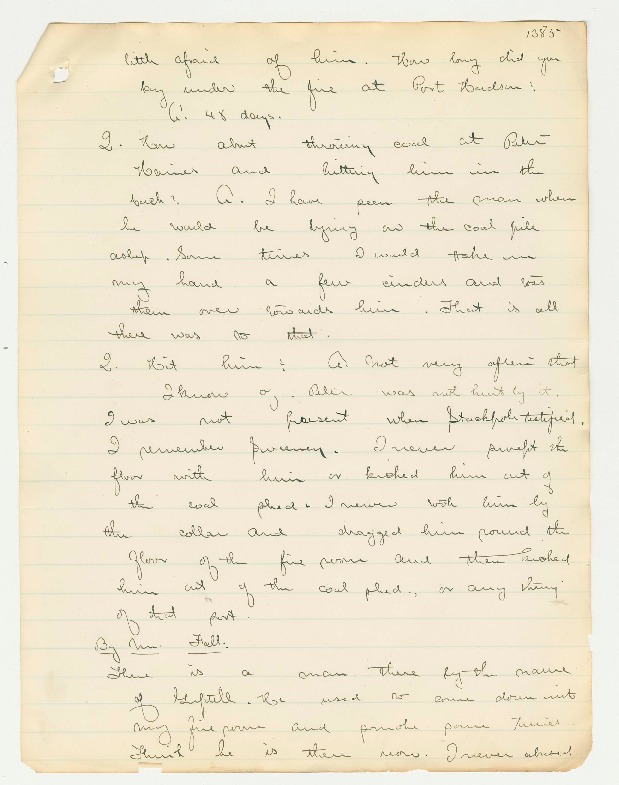 1385
little afraid of him. How long did you
lay under the fire at Port Hudson?
A. 48 days.
Q. How about throwing coal at Peter
Haines and hitting him in the
back? A. I have seen the man when
he would be lying on the coal pile
asleep. Some times I would take in
my hand a few cinders and toss
them over towards him. That is all
there was to that.
Q. Hit him? A. Not very often that
I know of. Peter was not hurt by it.
I was not present when Stackpole testified.
I remember Sweeney. I never swept the
floor with him or kicked him out of
the coal shed. I never took him by
the collar and dragged him round the
floor of the fire room and then kicked
him out of the coal shed, or any thing
of that sort.
By Mr. Fall:
There is a man there by the name
of He used to come down into
my fire room and smoke some times
Think he is there now. I never abused